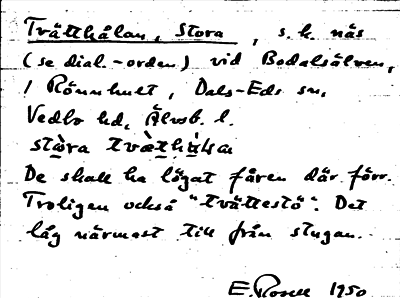 Tvätthålan, Stora, s. k. näs
(se dial.-orden) vid Bodalsälven,
/ Rönnhult, Dals-Eds sn,
Vedbo hd, Älvsb. l.
stòra tvæ̀thå̀la
De skall ha lögat fåren där förr.
Troligen också "tvättestö". Det
låg närmast till från stugan.
E. Rosell 1950